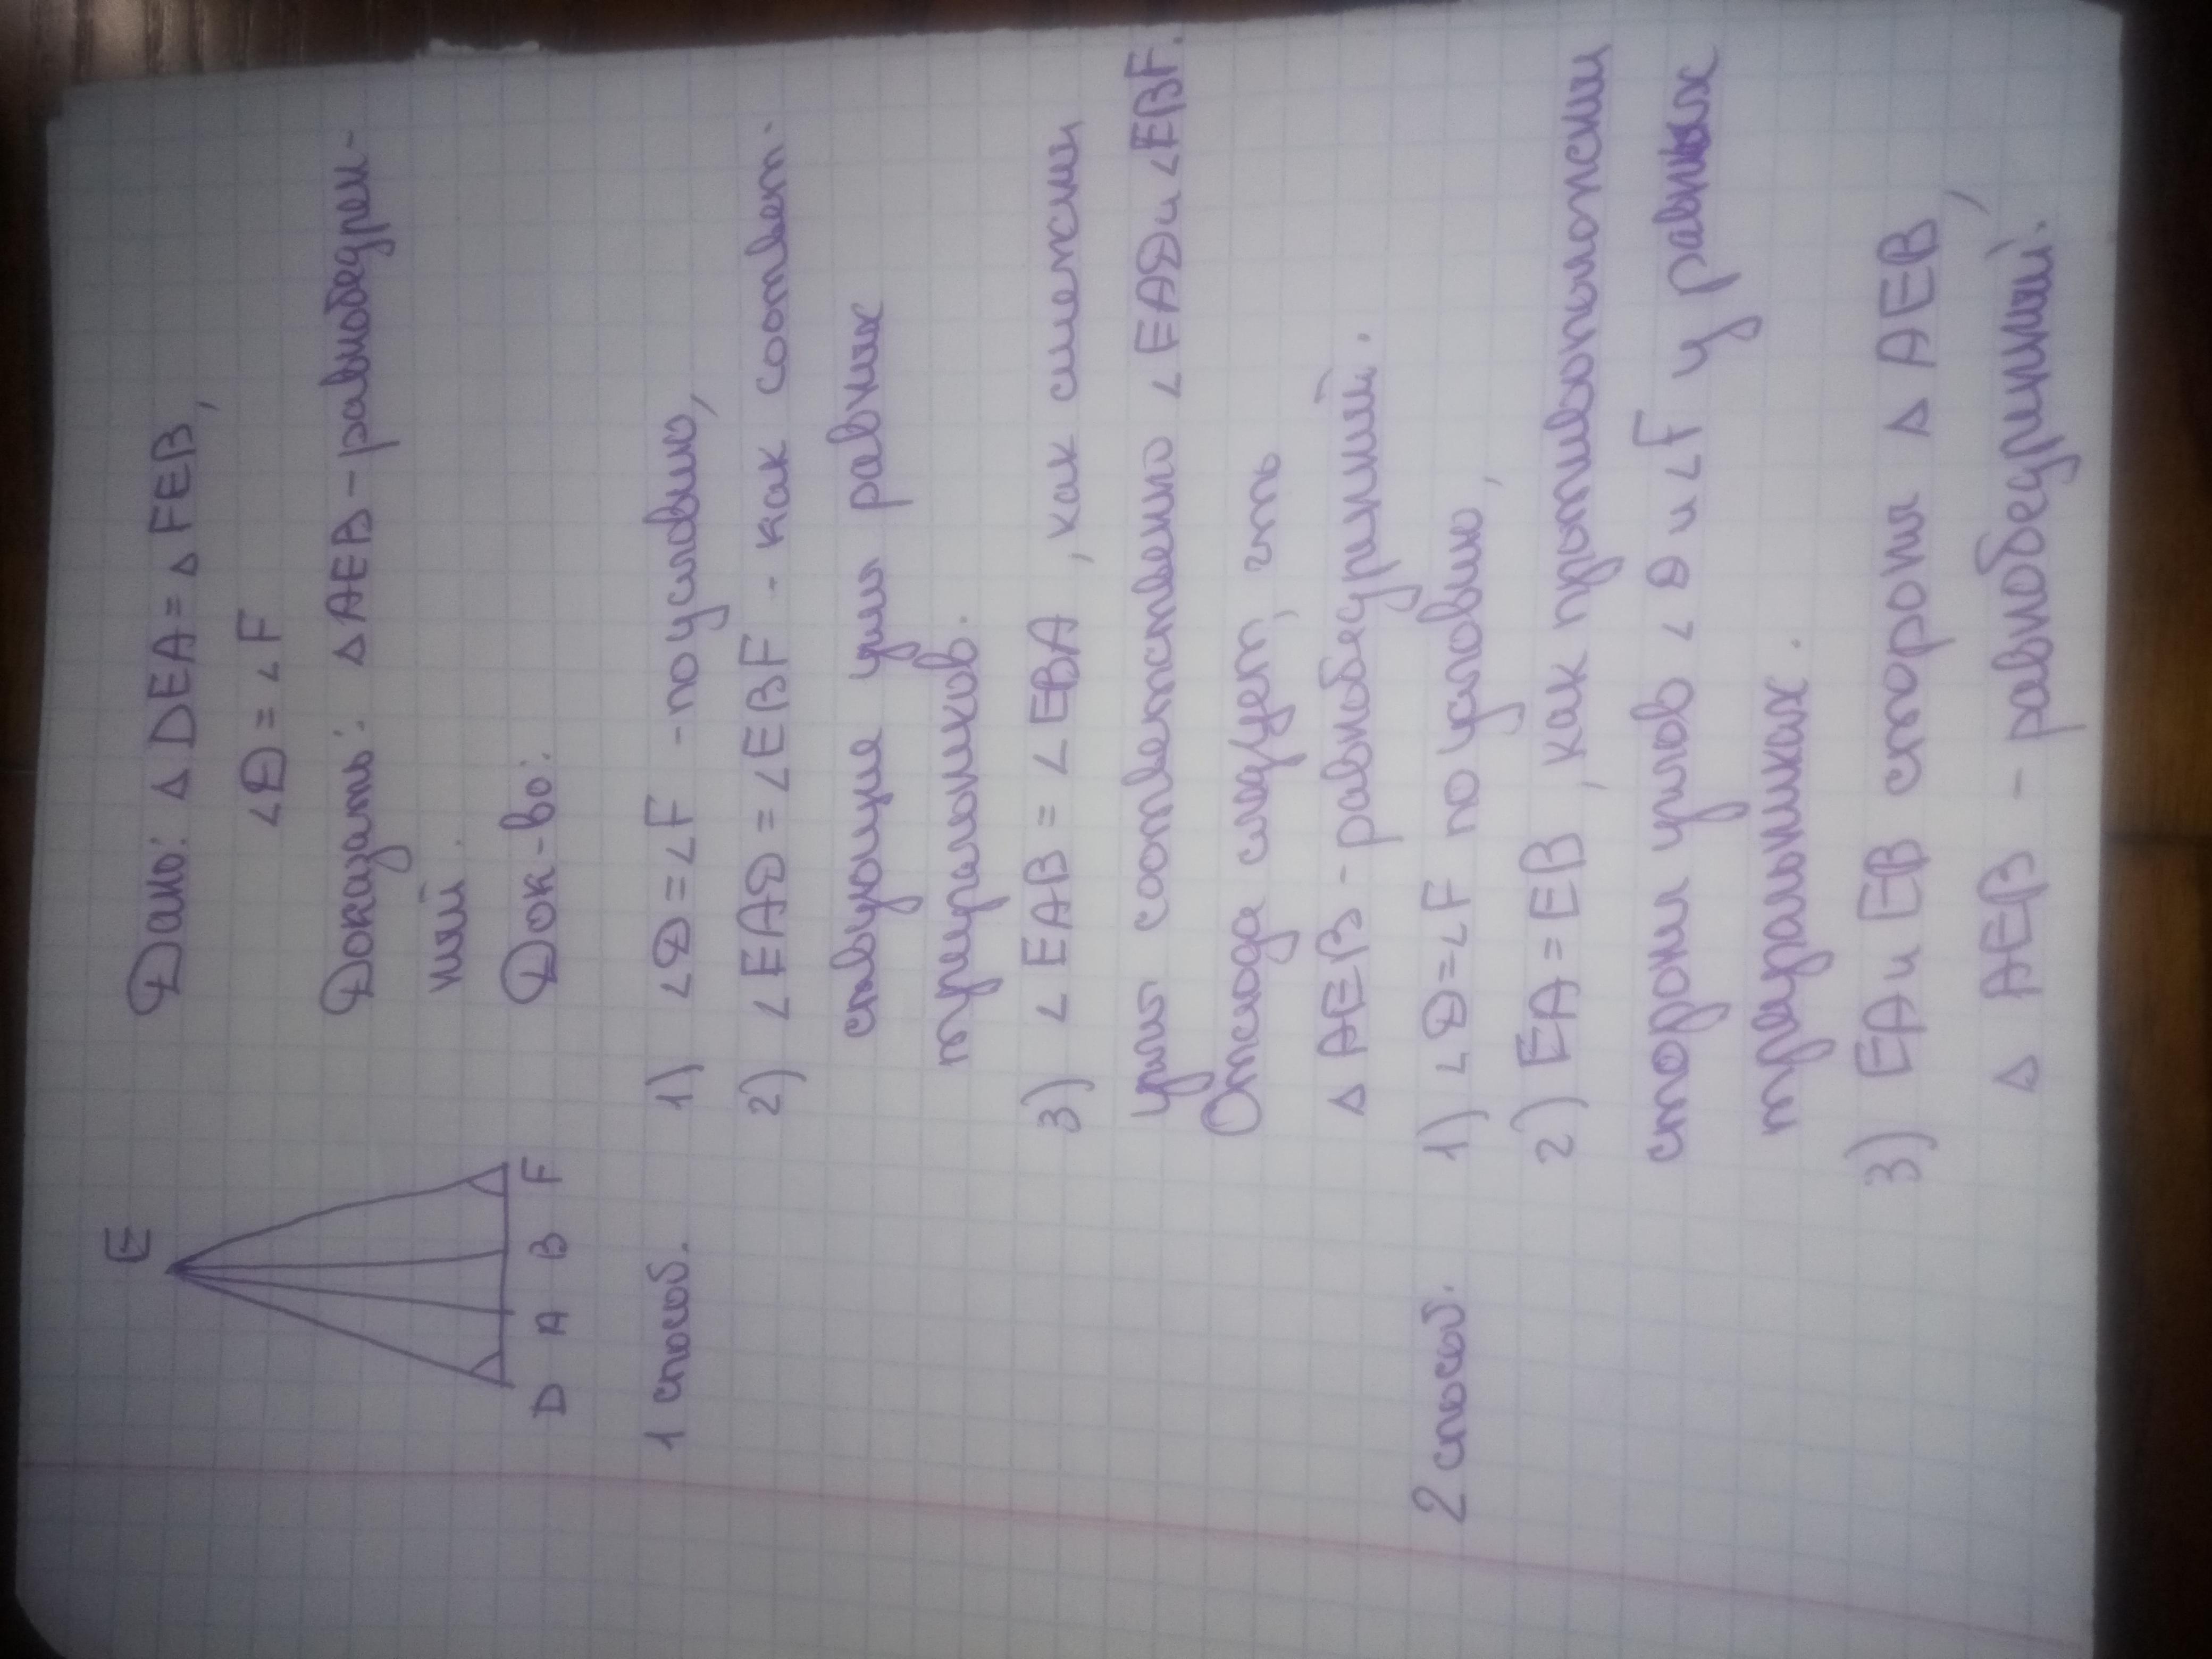 E
D A B F
Дано: △ DEA = △ FEB,
∠D = ∠F
Доказать: △ AEB – равнобедрен-
ный.
Док-во:
1 способ. 1) ∠D = ∠F - по условию,
2) ∠EAD = ∠EBF - как соответ-
ствующие углы равных
треугольников.
3) ∠EAB = ∠EBA, как смежные
углы соответственно ∠EAD и ∠EBF.
Отсюда следует, что
△ AEB - равнобедренный.
2 способ. 1) ∠D = ∠F по условию,
2) EA = EB, как противоположны
стороны углов ∠D и ∠F у равных
треугольниках.
3) EA и EB стороны △ AEB,
△ AEB - равнобедренный.